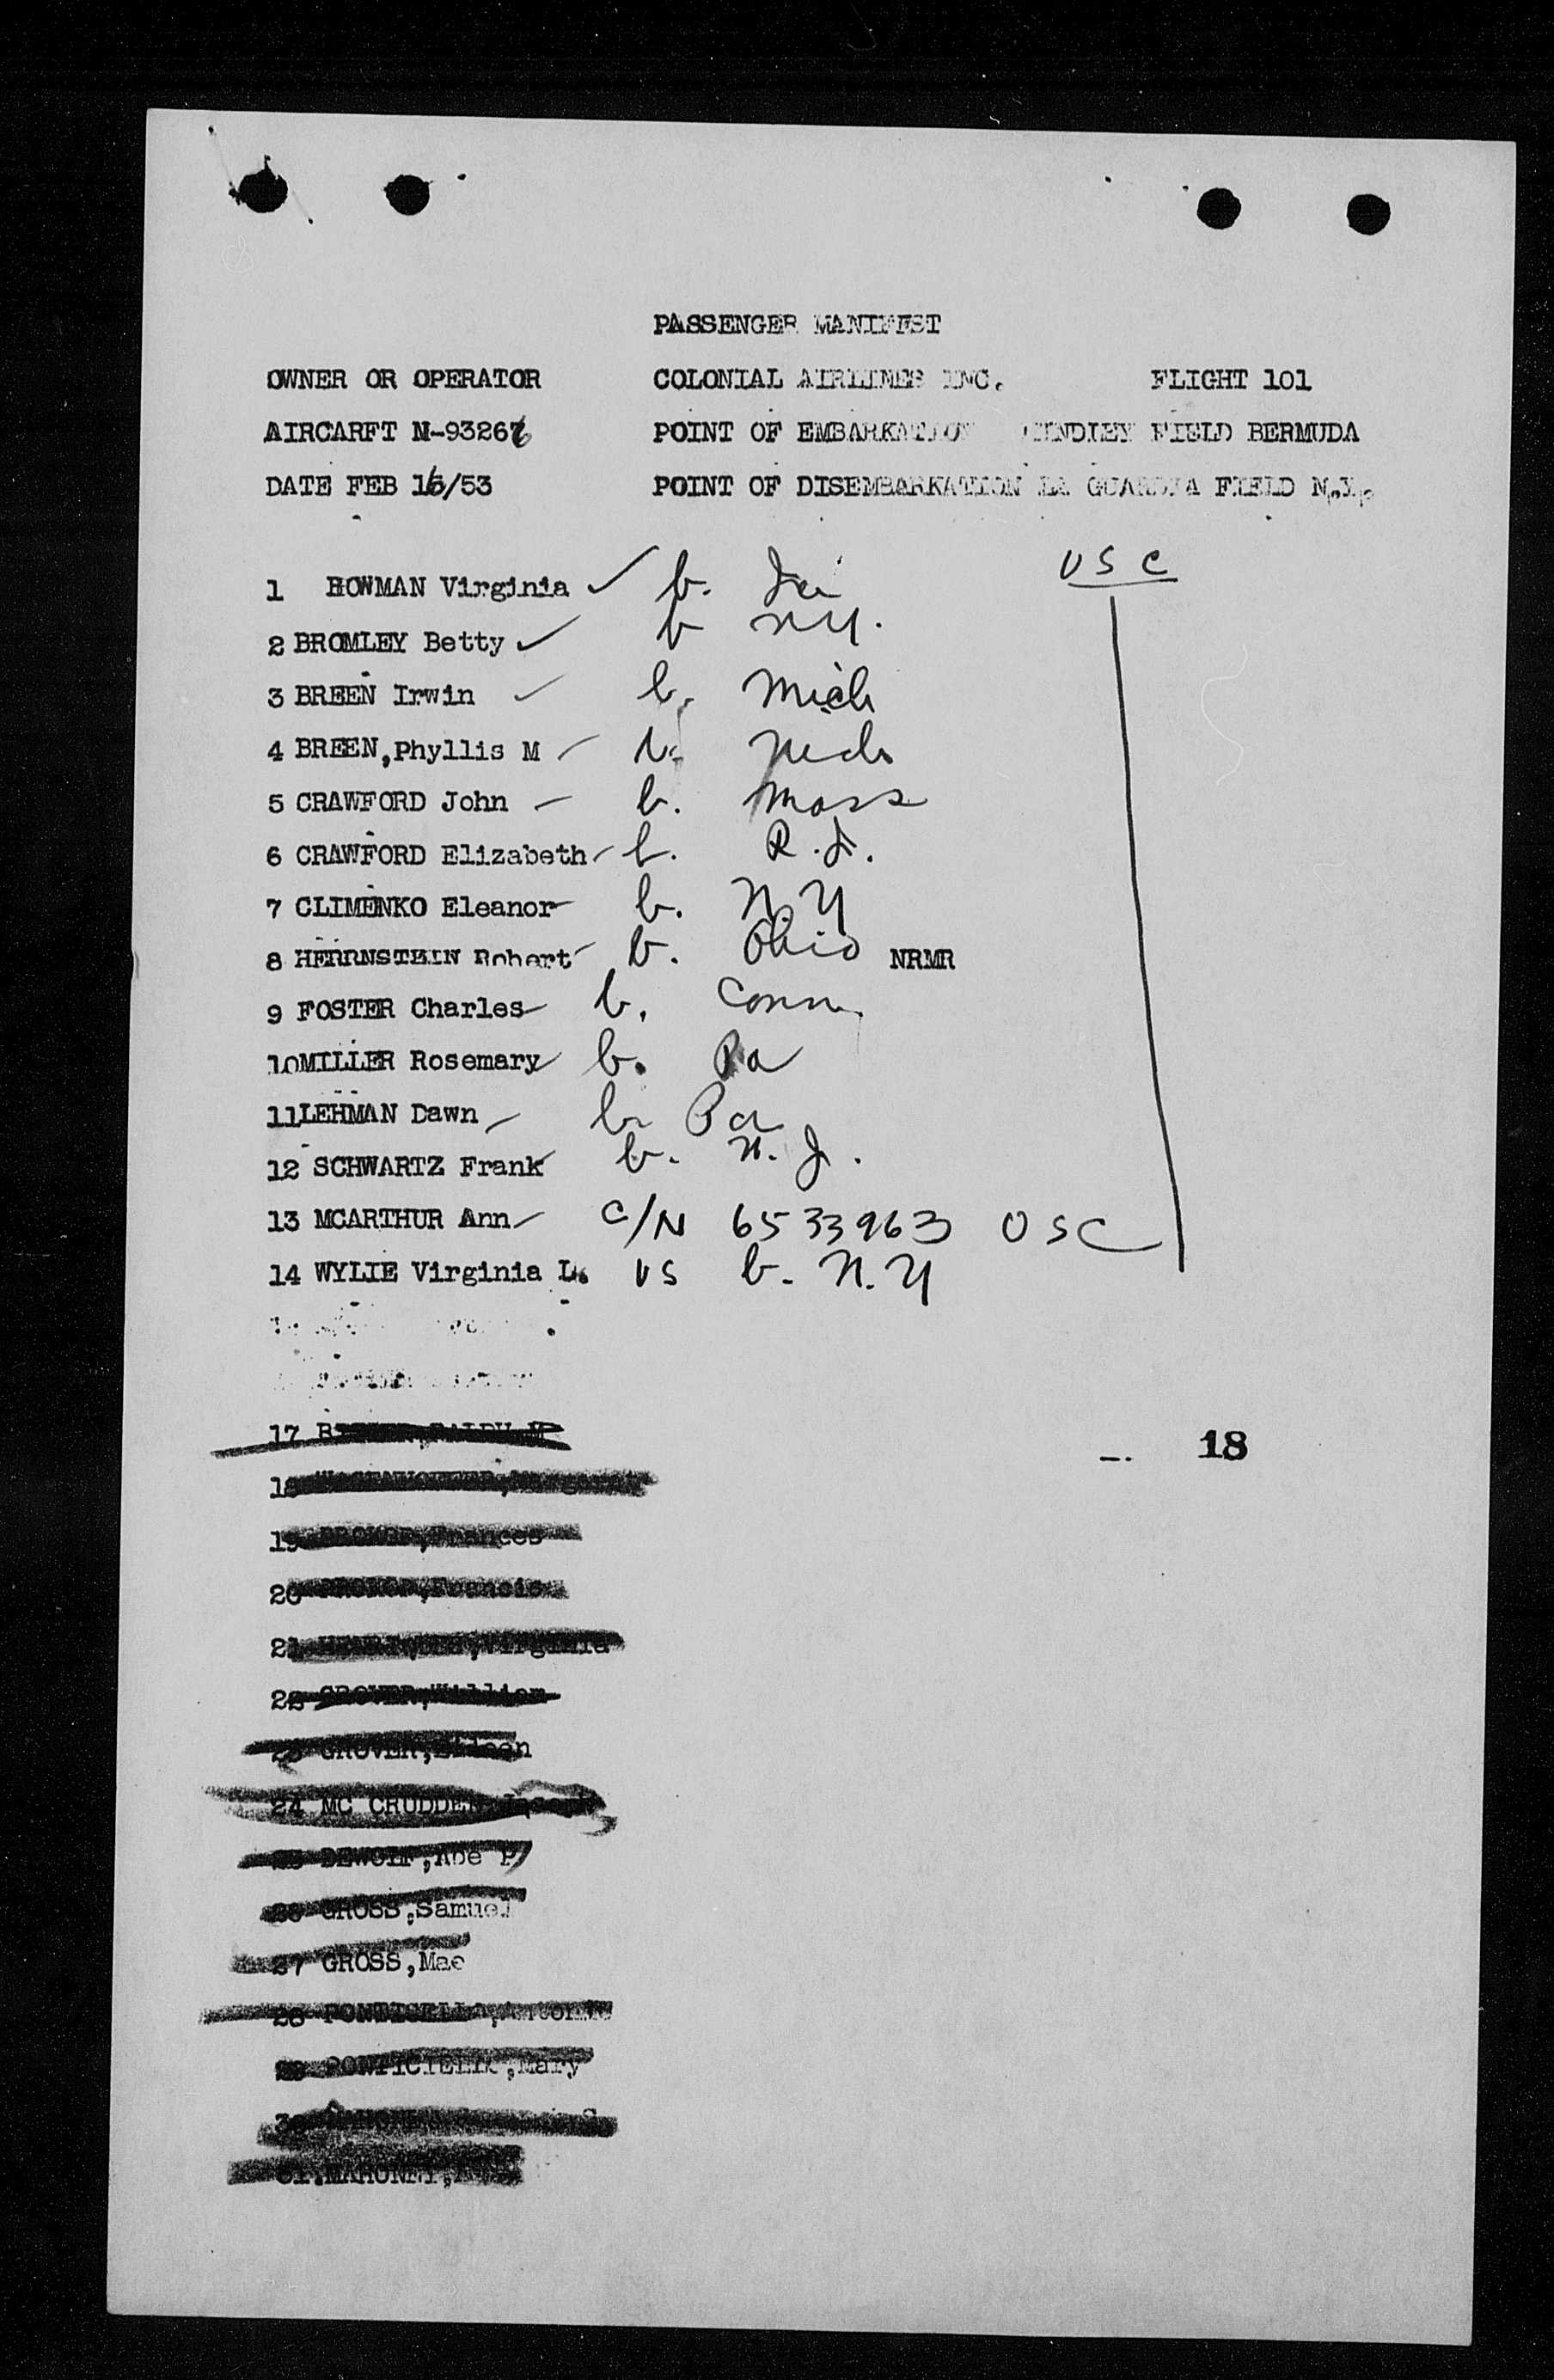 PASSENGER MANIFEST
OWNER OR OPERATOR COLONIAL AIRLINES INC. FLIGHT 101
AIRCARFT N-93267 POINT OF EMBARKATION KINDLEY FIELD BERMUDA
DATE FEB 16/53 POINT OF DISEMBARKATION LA GUARDIA FIELD N.Y.
USC
1 BOWMAN Virginia ✓ b.
2 BROMLEY Betty ✓ b NY.
3 BREEN Irwin ✓ b. Mich
4 BREEN,Phyllis M ✓ b. Mich
5 CRAWFORD John b. Mass
6 CRAWFORD Elizabeth b. R.I.
7 CLIMENKO Eleanor b. N.Y
8 HERRNSTEIN Robert b. Ohio NRMR
9 FOSTER Charles b. Conn.
10MILLER Rosemary b. Pa
11LEHMAN Dawn b. Pa
12 SCHWARTZ Frank b. N.J.
13 MCARTHUR Ann C/N 6533963 USC
14 WYLIE Virginia L. US b. N.Y
17
18
18
19 Frances
20 Francis
21 Virginia
22 GROVER,William
GROVER,
24 MC CRUDDEN
DEWOLF,Abe P
GROSS,Samuel
27 GROSS,Mae
28
Mary
30
31.MAHONEY,